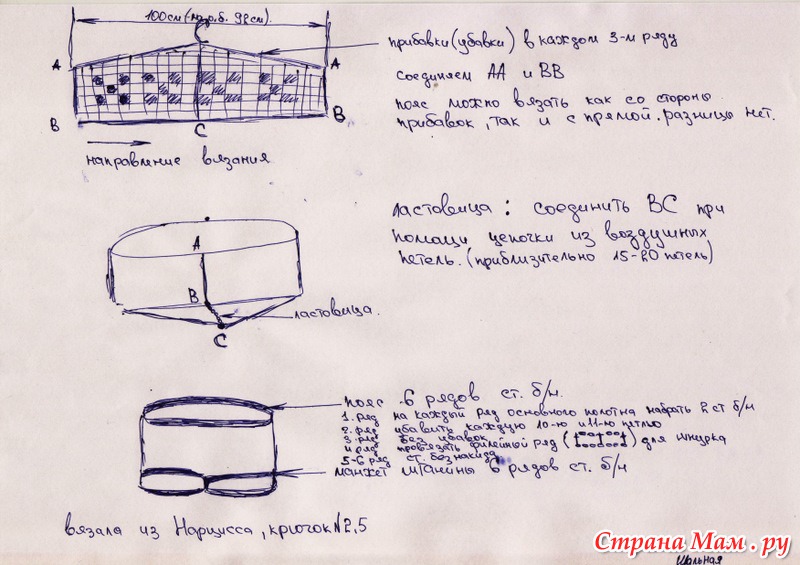 100см (по о.б. 98см).
C
A
A
B
C
B
направление вязания
прибавки (убавки) в каждом 3-м ряду
соединяем АА и ВВ
пояс можно вязать как со стороны
прибавок, так и с прямой. разницы нет.
ластовица: соединить ВС при
помощи цепочки из воздушных
петель. (приблизительно 15-20 петель)
A
B
ластовица.
C
пояс 6 рядов ст. б/н.
1. ряд на каждый ряд основного полотна набрать 2 ст б/н
2. ряд убавить каждую 10-ю и 11-ю петлю
3. ряд без убавок
4 ряд провязать филейный ряд ( ) для шнурка
5-6 ряд ст. без накида
манжет штанины 6 рядов ст. б/н
вязала из Нарцисса, крючок №2,5
Страна Мам.ру
Шальная